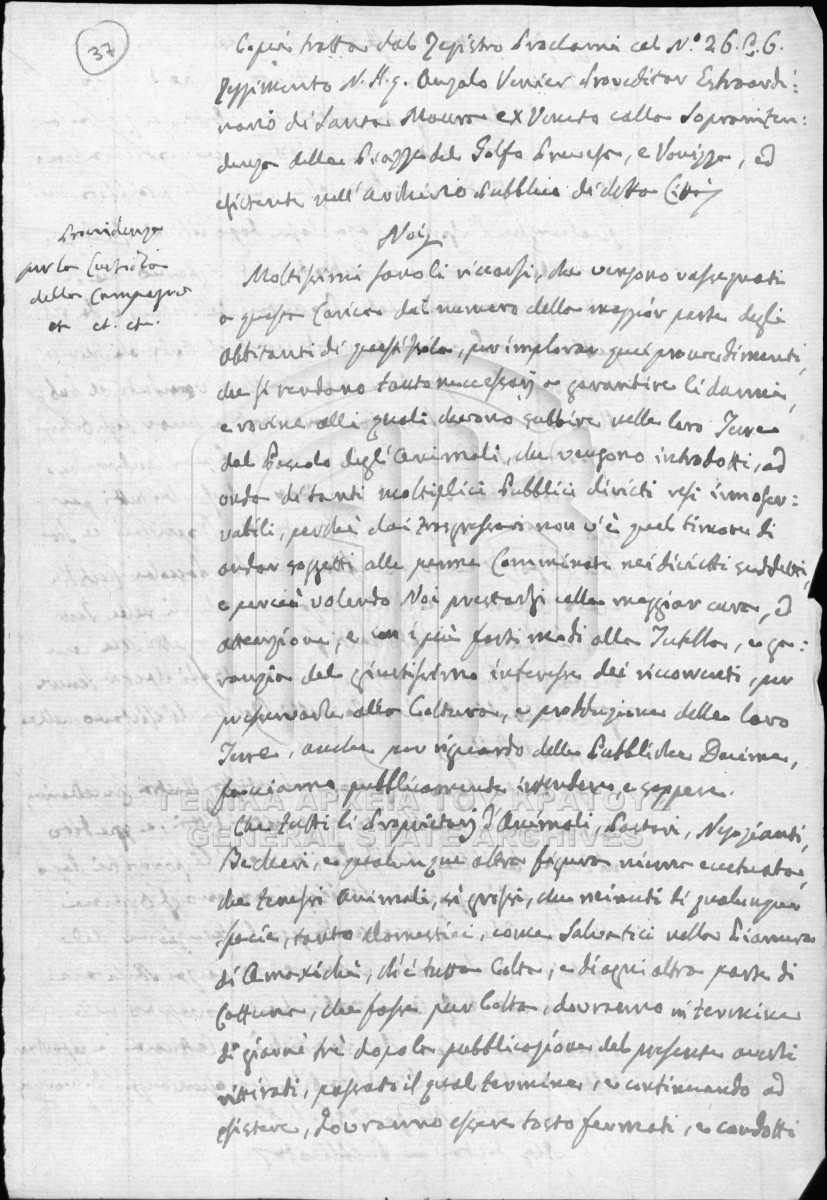 37
Copia tratta dal Registro Proclami al N.º 26. C. 6.
Reggimento N. H. q. Anzolo Venier Proveditor Estraordi:
nario di Santa Maura ex Veneto colla Sopraniten:
denza della Piazza del Golfo Prevesa, e Vonizza, ed
esistente nell'Archivio Pubblico di detta Città
Providenze
per la Custodia
della Campagna
et. et. etc.
Noi
Moltissimi sonoli riccorsi, che vengono rassegnati
a questa Carica dal numero della maggior parte degli
abbitanti di quest'Isola, per implorar quei provvedimenti,
che si rendono tanto necessarj a garantire li danni,
e rovine alli quali devono subbire nelle loro Terre
dal Pascolo degl'Animali, che vengono introdotti, ad
onta di tanti moltiplici Pubblici divieti resi innoser:
vabili, perchè dai trasgressori non v'è quel timore di
andar soggetti alle penne Comminate nei divieti suddetti,
e perciò volendo Noi prestarsi colla maggior cura, ed
attenzione, e con i più forti modi alla Tutella, e ga:
ranzia del giustissimo interesse dei riccorrenti, per
preservarle alla Coltura, e produzione delle loro
Terre, anche per riguardo delle Pubbliche Decime,
facciamo pubblicamente intendere, e sappere.
ΓΕΝΙΚΑ ΑΡΧΕΙΑ ΤΟΥ ΚΡΑΤΟΥΣ
GENERAL STATE ARCHIVES
Che tutti li Proprietarj d'Animali, Pastori, Negozianti,
Beccheri, e qualunque altra figura niuna eccetuata,
che tenessi Animali, si grossi, che minuti di qualunque
specie, tanto domestici, come Salvatici nella Pianura
di Amaxichi, ch'è tutta Colta, e di ogni altra parte di
Coltura, che fosse pur Colta, dovranno in termine
di giorni tre dopo la pubblicazione del presente averli
rittirati, passato il qual termine, e continuando ad
esistere, dovranno essere tosto fermati, e condotti